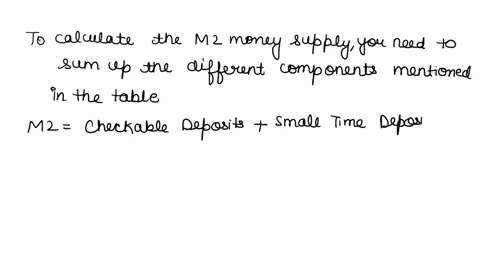 To calculate the M2 money supply, you need to
sum up the different components mentioned
in the table
M2 = Checkable Deposits + Small Time Depos